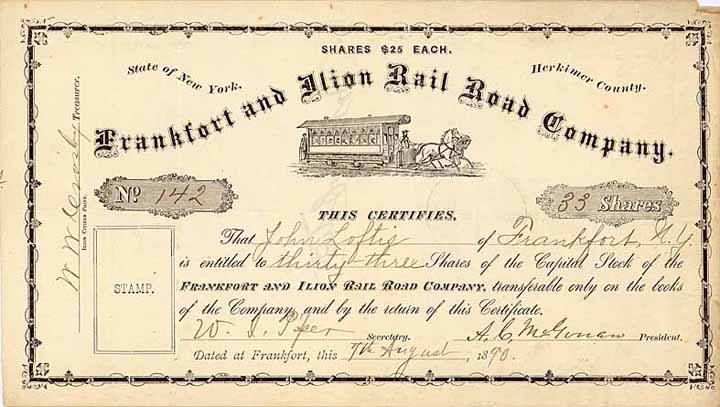 SHARES $25 EACH.
State of New York.
Herkimer County.
Frankfort and Ilion Rail Road Company.
Treasurer.
No 142
33 Shares
THIS CERTIFIES,
That John Loftis of Frankfort, N.Y.
is entitled to thirty-three Shares of the Capital Stock of the
FRANKFORT AND ILION RAIL ROAD COMPANY, transferable only on the books
of the Company, and by the return of this Certificate.
STAMP.
W. I. Piper Secretary. A. C. McGowan President.
Dated at Frankfort, this 7th August, 1890.